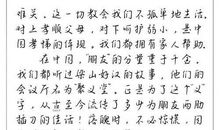 难关。这一切教会我们不孤单地生活。
对上孝顺父母，对下呵护弱小，是中
国孝悌的体现。我们都拥有家人帮助。
在中国，“朋友”的分量重于千金，
我们都听过梁山好汉的故事，他们的
会议厅名为“聚义堂”。正是为了这个“义”
字，从古至今流传了多少为朋友两肋
插刀的佳话！落魄时，不必惊慌，因